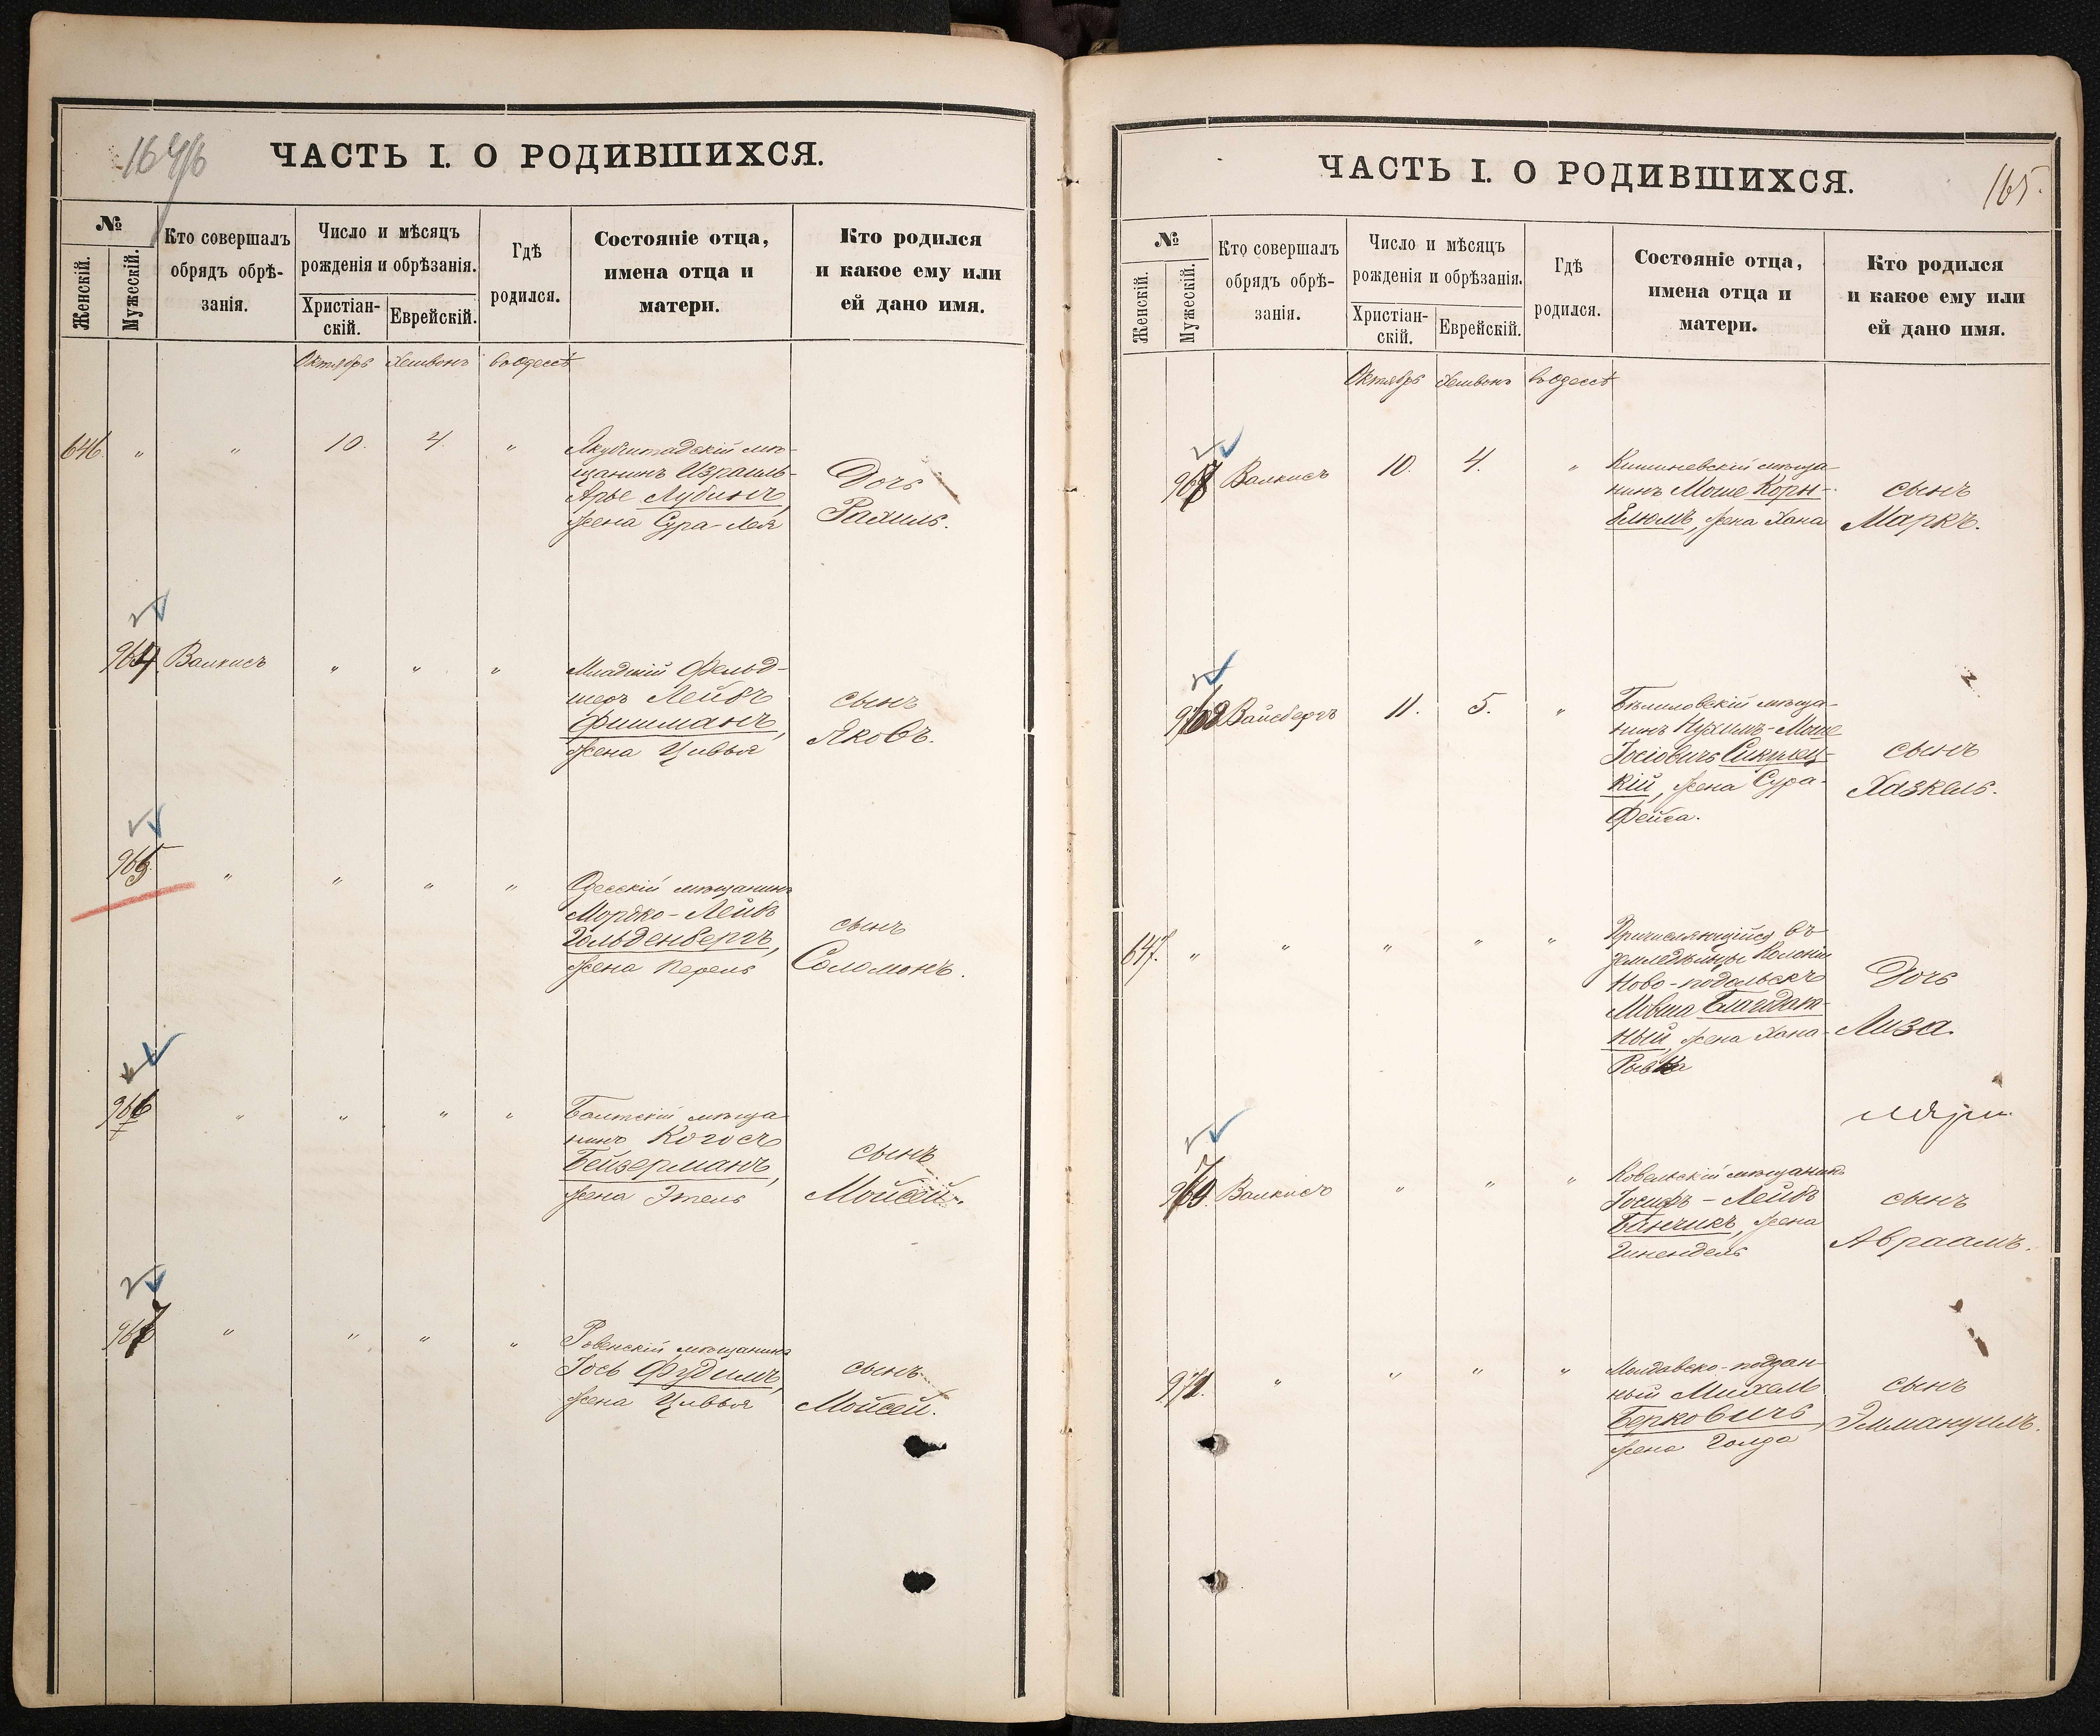 ЧАСТЬ I. О РОДИВШИХСЯ.
№
Женскій.
Мужескій.
Кто совершалъ
обрядъ обрѣ-
занія.
Число и мѣсяцъ
рожденія и обрѣзанія.
Христіан-
скій.
Еврейскій.
Гдѣ
родился.
Состояніе отца,
имена отца и
матери.
Кто родился
и какое ему или
ей дано имя.
Октябрь Хешвонъ въ Одессѣ
646. " " 10. 4. "
мѣ-
щанинъ Израиль-
Арье Лубинъ,
жена Сура-Лея
Дочь
Рахиль.
964. Валкисъ " " "
Младшій Фельд-
шеръ Лейбъ
Фишманъ,
жена Цивья
сынъ
Яковъ.
965. " " " "
Одесскій мѣщанинъ
Мордко-Лейбъ
Гольденбергъ,
жена Перель
сынъ
Соломонъ.
966 " " " "
Балтскій мѣща-
нинъ Когосъ
Бейзерманъ,
жена Этель
сынъ
Мойсей.
967 " " " "
Ровенскій мѣщанинъ
Іось Фудимъ,
жена Цивья
сынъ
Мойсей.
ЧАСТЬ I. О РОДИВШИХСЯ.
165.
№
Женскій.
Мужескій.
Кто совершалъ
обрядъ обрѣ-
занія.
Число и мѣсяцъ
рожденія и обрѣзанія.
Христіан-
скій.
Еврейскій.
Гдѣ
родился.
Состояніе отца,
имена отца и
матери.
Кто родился
и какое ему или
ей дано имя.
Октябрь Хешвонъ въ Одессѣ
Валкисъ 10. 4. "
Кишиневскій мѣща-
нинъ Моше Корн-
блюмъ, жена Хана
сынъ
Маркъ.
Вайсбергъ 11. 5. "
мѣща-
нинъ Нухимъ-Моше
Іосіовичъ
кій, жена Сура-
Фейга.
сынъ
Хазкель.
647. " " " " "
Причисляющійся въ
земледѣльцы Колоніи
Ново-подольскъ
Мовша Благодат-
ный, жена Хана-
Рывка
Дочь
Лиза.
969. Валкисъ " " "
Ковельскій мѣщанинъ
Іосифъ-Лейбъ
Банчикъ, жена
Гинендель
сынъ
Авраамъ.
971. " " " "
Молдавско-поддан-
ный Михель
Берковичъ,
жена Голда
сынъ
Эммануилъ.